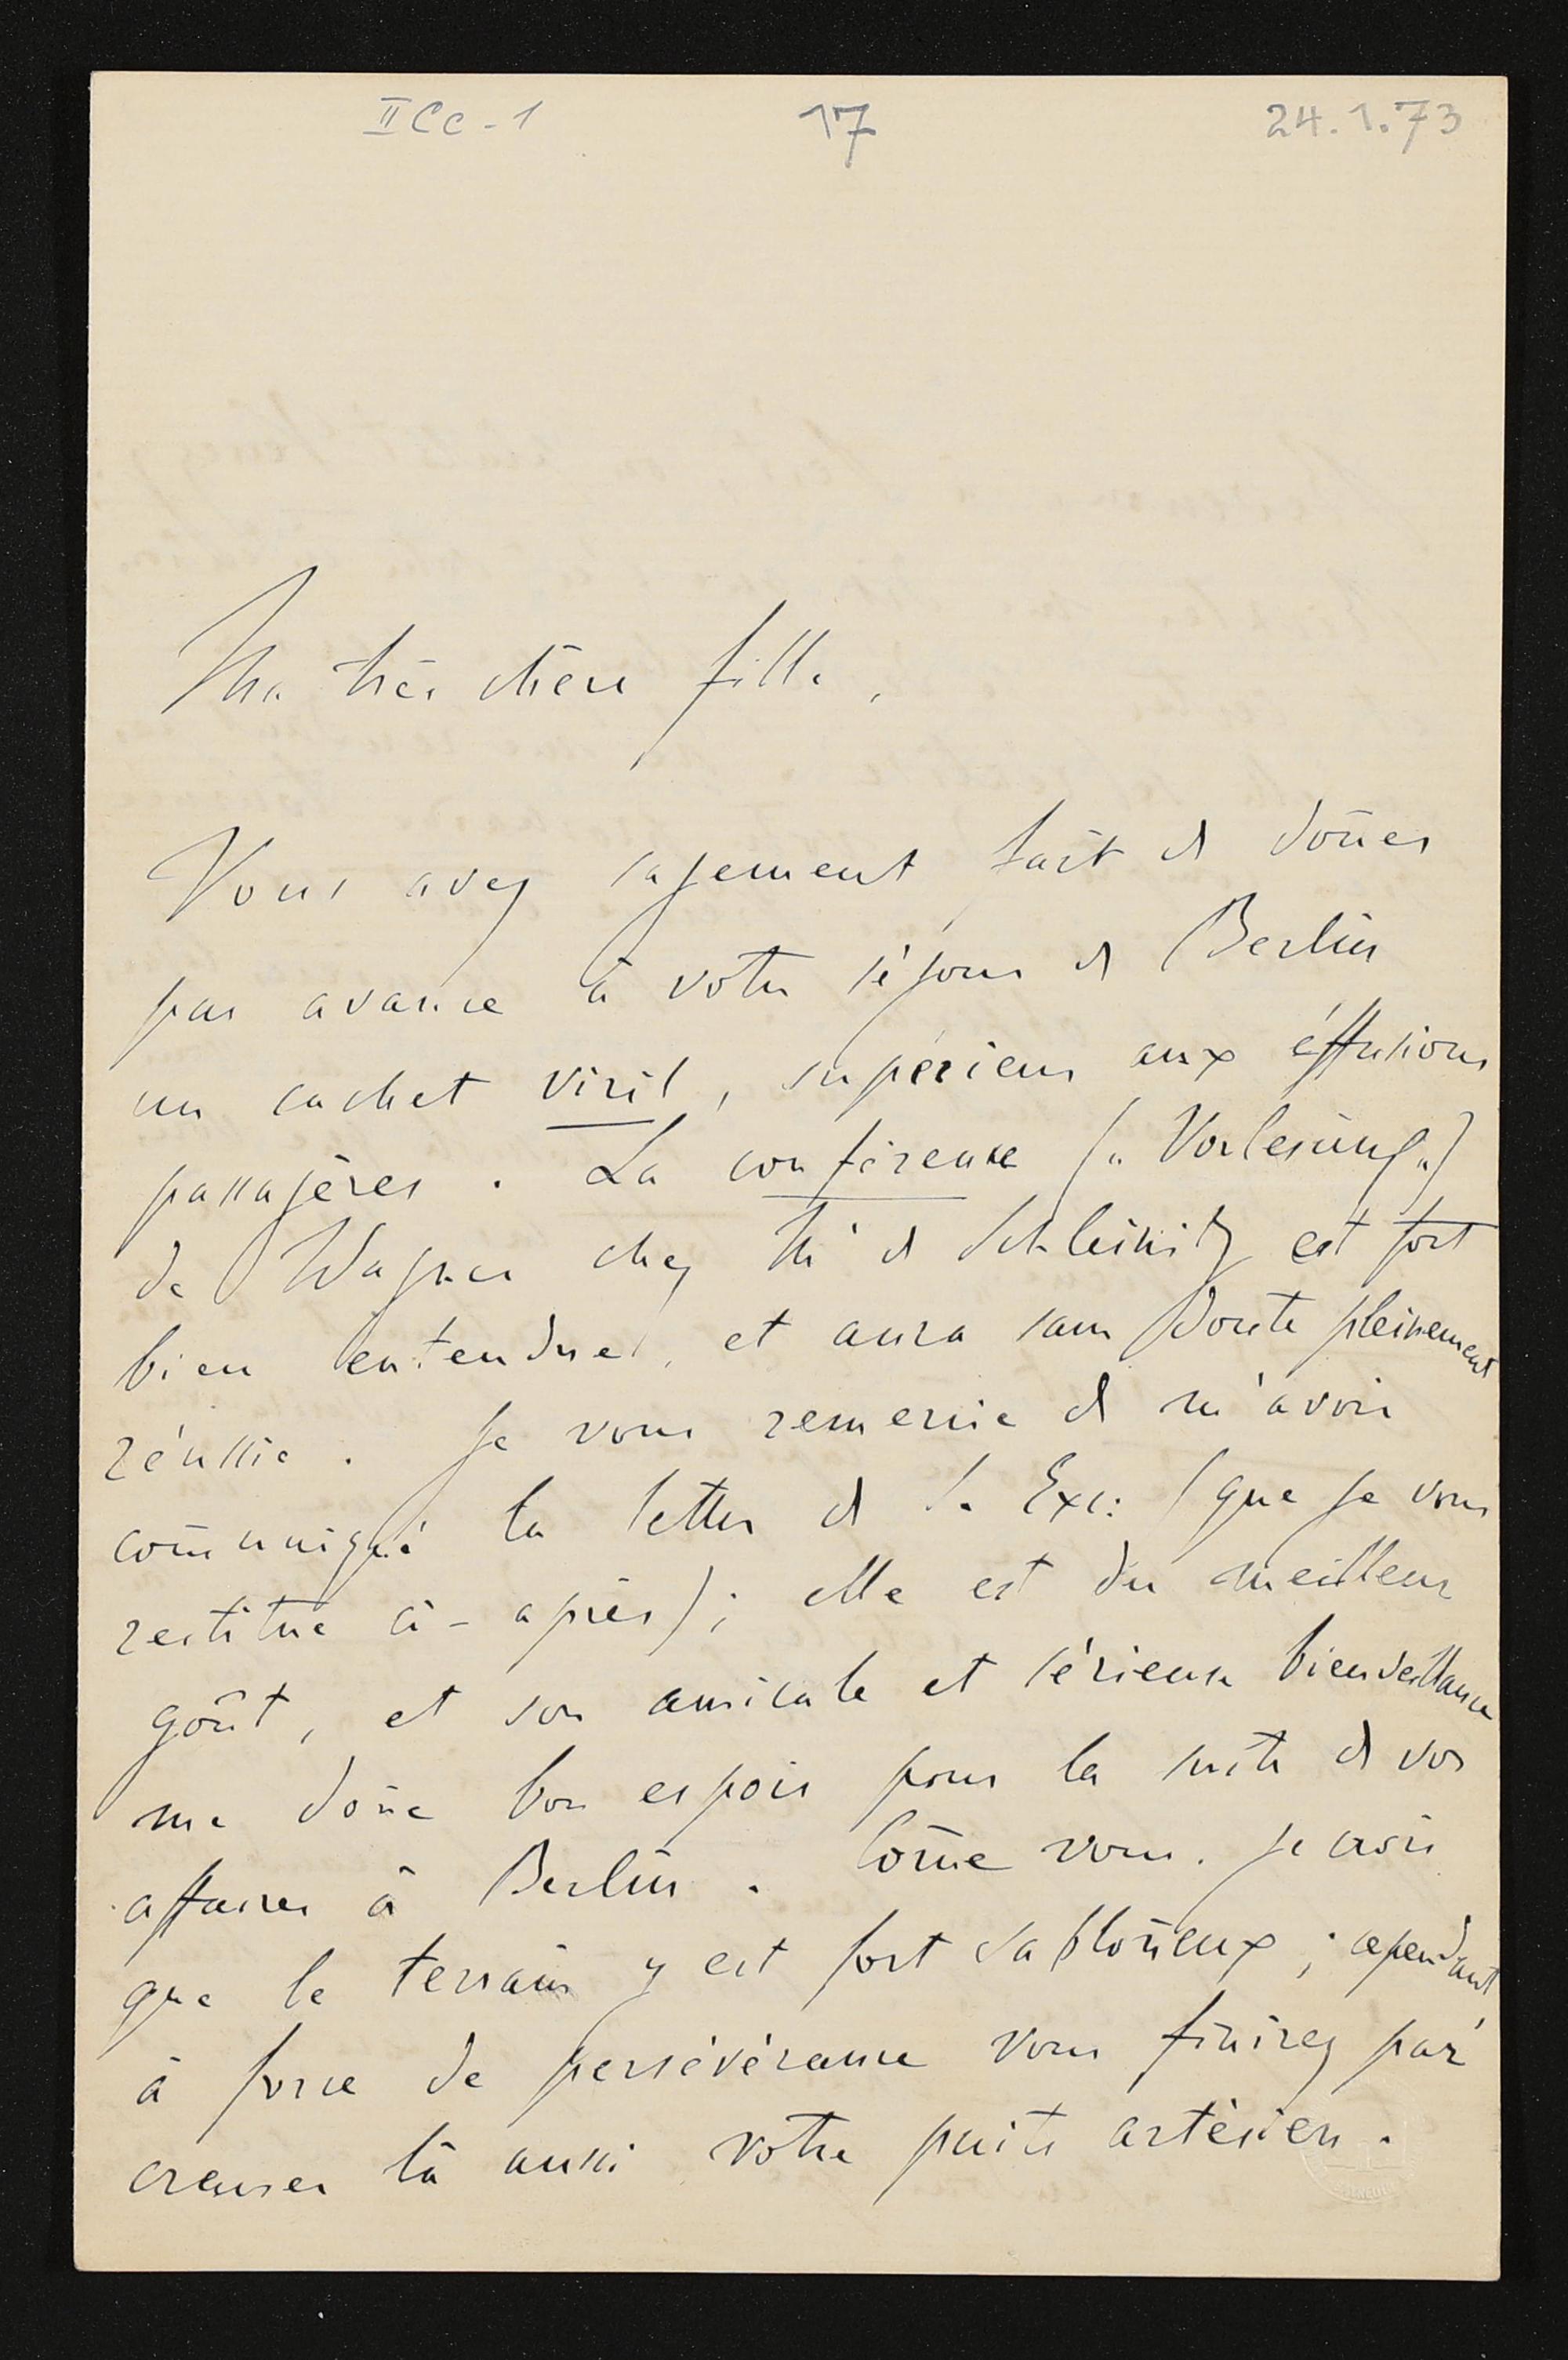 II Cc - 1 17 24.1.73
Ma très chère fille,
Vous avez sagement fait de doñer
par avance à votre séjour de Berlin
un cachet viril, supérieur aux éffusions
passagères. La conférence („Vorlesüng„)
de Wagner chez Me de Schleinitz est fort
bien entendue, et aura sans doute pleinement
réussie. Je vous remercie de m'avoir
com̃uniqué la lettre de S. Exc: (que je vous
restitue ci-après); elle est du meilleur
goût, et son amicale et sérieuse bienveillance
me doñe bon espoir pour la suite de vos
affaires à Berlin. Com̃e vous, je crois
que le terrain y est fort sabloñeux; cependant
à force de persévérance vous finirez par
creuser là aussi votre puits artésien.